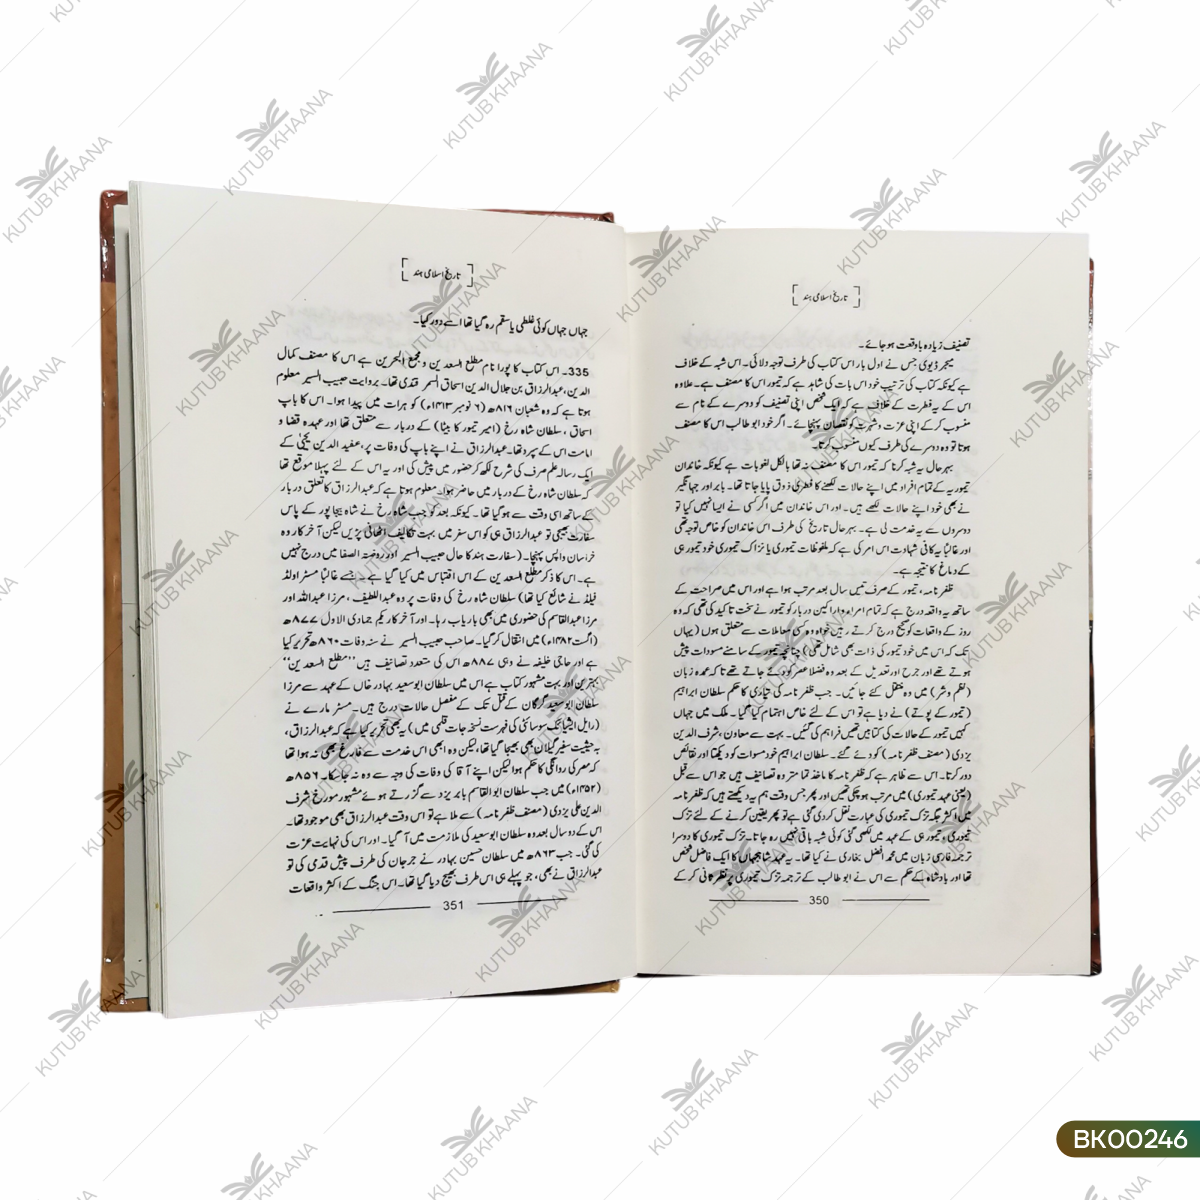 تاریخ اسلامی ہند
تصنیف زیادہ باوقعت ہو جائے۔
میجر ڈیوی جس نے اول بار اس کتاب کی طرف توجہ دلائی۔ اس شبہ کے خلاف
ہے کیونکہ کتاب کی ترتیب خود اس بات کی شاہد ہے کہ تیمور اس کا مصنف ہے۔ علاوہ
اس کے یہ فطرت کے خلاف ہے کہ ایک شخص اپنی تصنیف کو دوسرے کے نام سے
منسوب کر کے اپنی عزت و شہرت کو نقصان پہنچائے۔ اگر خود ابو طالب اس کا مصنف
ہوتا تو وہ دوسرے کی طرف کیوں منسوب کرتا۔
بہرحال یہ شبہ کرنا کہ تیمور اس کا مصنف نہ تھا بالکل لغو بات ہے کیونکہ خاندان
تیموریہ کے تمام افراد میں اپنے حالات لکھنے کا فطری ذوق پایا جاتا تھا۔ بابر اور جہانگیر
نے بھی خود اپنے حالات لکھے ہیں۔ اور اس خاندان میں اگر کسی نے ایسا نہیں کیا تو
دوسروں سے یہ خدمت لی ہے۔ بہرحال تاریخ کی طرف اس خاندان کو خاص توجہ تھی
اور غالباً یہ کافی شہادت اس امر کی ہے کہ ملفوظات تیموری یا تزک تیموری خود تیمور ہی
کے دماغ کا نتیجہ ہے۔
ظفر نامہ، تیمور کے صرف تیس سال بعد مرتب ہوا ہے اور اس میں صراحت کے
ساتھ یہ واقعہ درج ہے کہ تمام امراء و اراکین دربار کو تیمور نے سخت تاکید کی تھی کہ وہ
روز کے واقعات کو صحیح درج کرتے رہیں خواہ وہ کسی معاملات سے متعلق ہوں (یہاں
تک کہ اس میں خود تیمور کی ذات بھی شامل تھی) چنانچہ تیمور کے سامنے مسودات پیش
ہوتے تھے اور جرح اور تعدیل کے بعد وہ فضلا عصر کو دئے جاتے تھے تاکہ عمدہ زبان
(نظم و نثر) میں وہ منتقل کئے جائیں۔ جب ظفر نامہ کی تیاری کا حکم سلطان ابراہیم
(تیمور کے پوتے) نے دیا ہے تو اس کے لئے خاص اہتمام کیا گیا۔ ملک میں جہاں
کہیں تیمور کے حالات کی کتابیں تھیں فراہم کی گئیں۔ بہت سے معاون، شرف الدین
یزدی (مصنف ظفر نامہ) کو دئے گئے۔ سلطان ابراہیم خود مسودات کو دیکھتا اور نقائص
دور کرتا۔ اس سے ظاہر ہے کہ ظفر نامہ کا ماخذ تمام تر وہ تصانیف ہیں جو اس سے قبل
(یعنی عہد تیموری) میں مرتب ہو چکی تھیں اور پھر جس وقت ہم یہ دیکھتے ہیں کہ ظفر نامہ
میں اکثر جگہ تزک تیموری کی عبارت نقل کر دی گئی ہے تو پھر یقین کرنے کے لئے تزک
تیموری و تیمور ہی کے عہد میں لکھی گئی کوئی شبہ باقی نہیں رہ جاتا۔ تزک تیموری کا دوسرا
ترجمہ فارسی زبان میں محمد افضل بخاری نے کیا تھا۔ یہ عہد شاہجہاں کا ایک فاضل شخص
تھا اور بادشاہ کے حکم سے اس نے ابو طالب کے ترجمہ تزک تیموری پر نظر ثانی کر کے
350
تاریخ اسلامی ہند
جہاں جہاں کوئی غلطی یا سقم رہ گیا تھا اسے دور کیا۔
335۔ اس کتاب کا پورا نام مطلع السعدین و مجمع البحرین ہے اس کا مصنف کمال
الدین، عبدالرزاق بن جلال الدین اسحاق السمر قندی تھا۔ بروایت حبیب السیر معلوم
ہوتا ہے کہ وہ شعبان ۸۱۶ھ (۶ نومبر ۱۴۱۳ء) کو ہرات میں پیدا ہوا۔ اس کا باپ
اسحاق، سلطان شاہ رخ (امیر تیمور کا بیٹا) کے دربار سے متعلق تھا اور عہدہ قضا و
امامت اس کے سپرد تھا۔ عبدالرزاق نے اپنے باپ کی وفات پر، عفید الدین یحییٰ کے
ایک رسالہ علم صرف کی شرح لکھ کر حضور میں پیش کی اور یہ اس کے لئے پہلا موقع تھا
کہ سلطان شاہ رخ کے دربار میں حاضر ہوا۔ معلوم ہوتا ہے کہ عبدالرزاق کا تعلق دربار
کے ساتھ اسی وقت سے ہو گیا تھا۔ کیونکہ بعد کو جب شاہ رخ نے شاہ بیجا پور کے پاس
سفارت بھیجی تو عبدالرزاق ہی کو اس سفر میں بہت تکالیف اٹھانی پڑیں لیکن آخر کار وہ
خراسان واپس پہنچا۔ (سفارت ہند کا حال حبیب السیر اور روضۃ الصفا میں درج نہیں
ہے۔ اس کا ذکر مطلع السعدین کے اس اقتباس میں کیا گیا ہے جسے غالباً مسٹر اولڈ
فیلڈ نے شائع کیا تھا) سلطان شاہ رخ کی وفات پر وہ عبداللطیف، مرزا عبداللہ اور
مرزا عبدالقاسم کی حضوری میں بھی باریاب رہا۔ اور آخر کار یکم جمادی الاول ۸۷۷ھ
(اگست ۱۴۸۲ء) میں انتقال کر گیا۔ صاحب حبیب السیر نے سنہ وفات ۸۶۰ھ تحریر کیا
ہے اور حاجی خلیفہ نے وہی ۸۸۷ھ اس کی متعدد تصانیف ہیں "مطلع السعدین"
بہترین اور بہت مشہور کتاب ہے اس میں سلطان ابوسعید بہادر خاں کے عہد سے مرزا
سلطان ابوسعید گرگان کے قتل تک کے مفصل حالات درج ہیں۔ مسٹر مارے نے
(رایل ایشیاٹک سوسائٹی کی فہرست نسخہ جات قلمی میں) یہ بھی تحریر کیا ہے کہ عبدالرزاق،
بہ حیثیت سفیر گیلان بھی بھیجا گیا تھا، لیکن وہ ابھی اس خدمت سے فارغ بھی نہ ہوا تھا
کہ مصر کی روانگی کا حکم ہوا لیکن اپنے آقا کی وفات کی وجہ سے وہ نہ جا سکا۔ ۸۵۶ھ
(۱۴۵۲ء) میں جب سلطان ابوالقاسم بابر یزد سے گزرتے ہوئے مشہور مورخ شرف
الدین علی یزدی (مصنف ظفر نامہ) سے ملا ہے تو اس وقت عبدالرزاق بھی موجود تھا۔
اس کے دو سال بعد وہ سلطان ابوسعید کی ملازمت میں آ گیا۔ اور اس کی نہایت عزت
کی گئی۔ جب ۸۶۳ھ میں سلطان حسین بہادر نے جرجان کی طرف پیش قدمی کی تو
عبدالرزاق نے بھی، جو پہلے ہی اس طرف بھیج دیا گیا تھا۔ اس جنگ کے اکثر واقعات
351
KUTUB KHAANA
BK00246